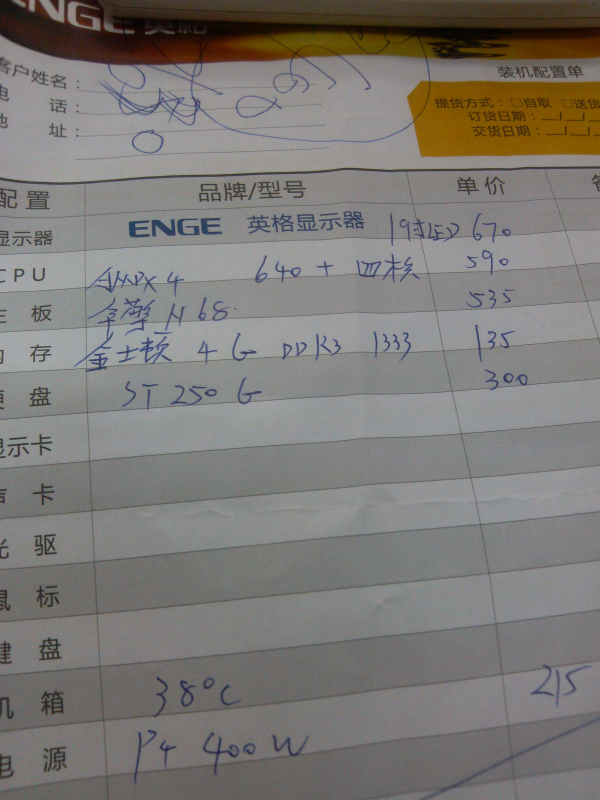 ENGE 英格
装机配置单
客户姓名：
电 话：
地 址：
提货方式：□自取 □送货
订货日期：__/__/__
交货日期：__/__/__
配置 品牌/型号 单价 备
显示器 ENGE 英格显示器 19寸LED 670
CPU AMDX4 640 + 四核 590
主 板 华擎 N68 535
内 存 金士顿 4G DDR3 1333 135
硬 盘 ST 250 G 300
显示卡
声 卡
光 驱
鼠 标
键 盘
机 箱 38℃ 215
电 源 P4 400W